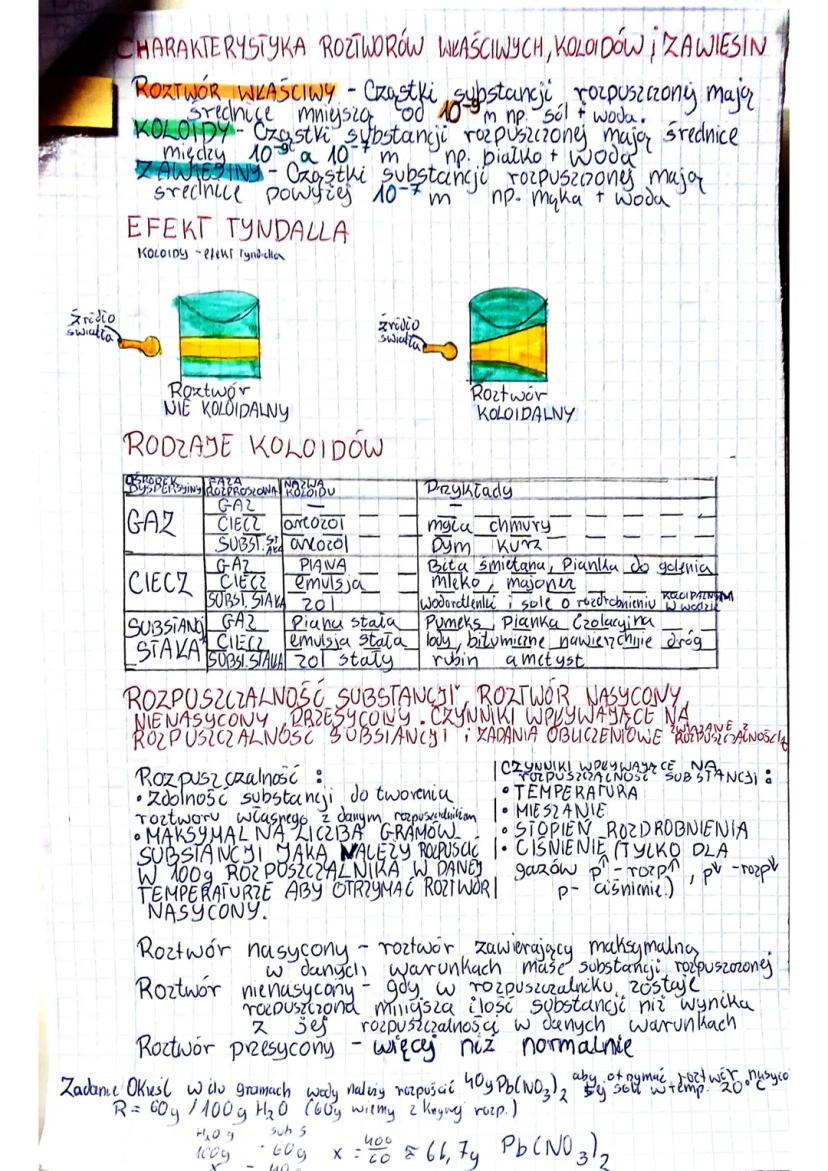 CHARAKTERYSTYKA ROZTWORÓW WŁAŚCIWYCH, KOLOIDÓW i ZAWIESIN
ROZTWÓR WŁAŚCIWY - Cząstki substancji rozpuszczonej mają
średnice mniejszą od 10⁻⁹ m np. sól + woda.
KOLOIDY - Cząstki substancji rozpuszczonej mają średnice
między 10⁻⁹ a 10⁻⁷ m np. białko + woda
ZAWIESINY - Cząstki substancji rozpuszczonej mają
średnice powyżej 10⁻⁷ m np. mąka + woda
EFEKT TYNDALLA
KOLOIDY - efekt Tyndalla
źródło
światła
Roztwór
NIE KOLOIDALNY
źródło
światła
Roztwór
KOLOIDALNY
RODZAJE KOLOIDÓW
OŚRODEK DYSPERSYJNY FAZA ROZPROSZONA NAZWA KOLOIDU Przykłady
GAZ GAZ — —
CIECZ aerozol mgła chmury
SUBST. STAŁA aerozol Dym kurz
CIECZ GAZ PIANA Bita śmietana, Pianka do golenia
CIECZ emulsja mleko, majonez
SUBST. STAŁA zol wodorotlenki i sole o rozdrobnieniu KOLOIDALNYM W WODZIE
SUBSTANCJA STAŁA GAZ Piana stała Pumeks, Pianka izolacyjna
CIECZ emulsja stała lody, bitumiczne nawierzchnie dróg
SUBST. STAŁA zol stały rubin ametyst
ROZPUSZCZALNOŚĆ SUBSTANCJI, ROZTWÓR NASYCONY,
NIENASYCONY, PRZESYCONY. CZYNNIKI WPŁYWAJĄCE NA
ROZPUSZCZALNOŚĆ SUBSTANCJI i ZADANIA OBLICZENIOWE ZWIĄZANE Z ROZPUSZCZALNOŚCIĄ
Rozpuszczalność :
• Zdolność substancji do tworzenia
roztworu własnego z danym rozpuszczalnikiem
• MAKSYMALNA LICZBA GRAMÓW
SUBSTANCJI JAKA NALEŻY ROZPUŚCIĆ
W 100g ROZPOSZCZALNIKA W DANEJ
TEMPERATURZE ABY OTRZYMAĆ ROZTWÓR
NASYCONY.
CZYNNIKI WPŁYWAJĄCE NA
ROZPUSZCZALNOŚĆ SUBSTANCJI :
• TEMPERATURA
• MIESZANIE
• STOPIEŃ ROZDROBNIENIA
• CIŚNIENIE (TYLKO DLA
gazów p↑ - rozp↑, p↓ - rozp↓
p - ciśnienie.)
Roztwór nasycony - roztwór zawierający maksymalną
w danych warunkach masę substancji rozpuszczonej
Roztwór nienasycony - gdy w rozpuszczalniku zostaje
rozpuszczona mniejsza ilość substancji niż wynika
z jej rozpuszczalności w danych warunkach
Roztwór przesycony - więcej niż normalnie
Zadanie Określ w ilu gramach wody należy rozpuścić 40g Pb(NO₃)₂ aby otrzymać roztwór nasyco
tej soli w temp. 20°C
R = 60g / 100g H₂O (60g wiemy z krzywej rozp.)
H₂O g subs
100g - 60g x = 400/60 ≈ 66,7g Pb(NO₃)₂
x - 40g